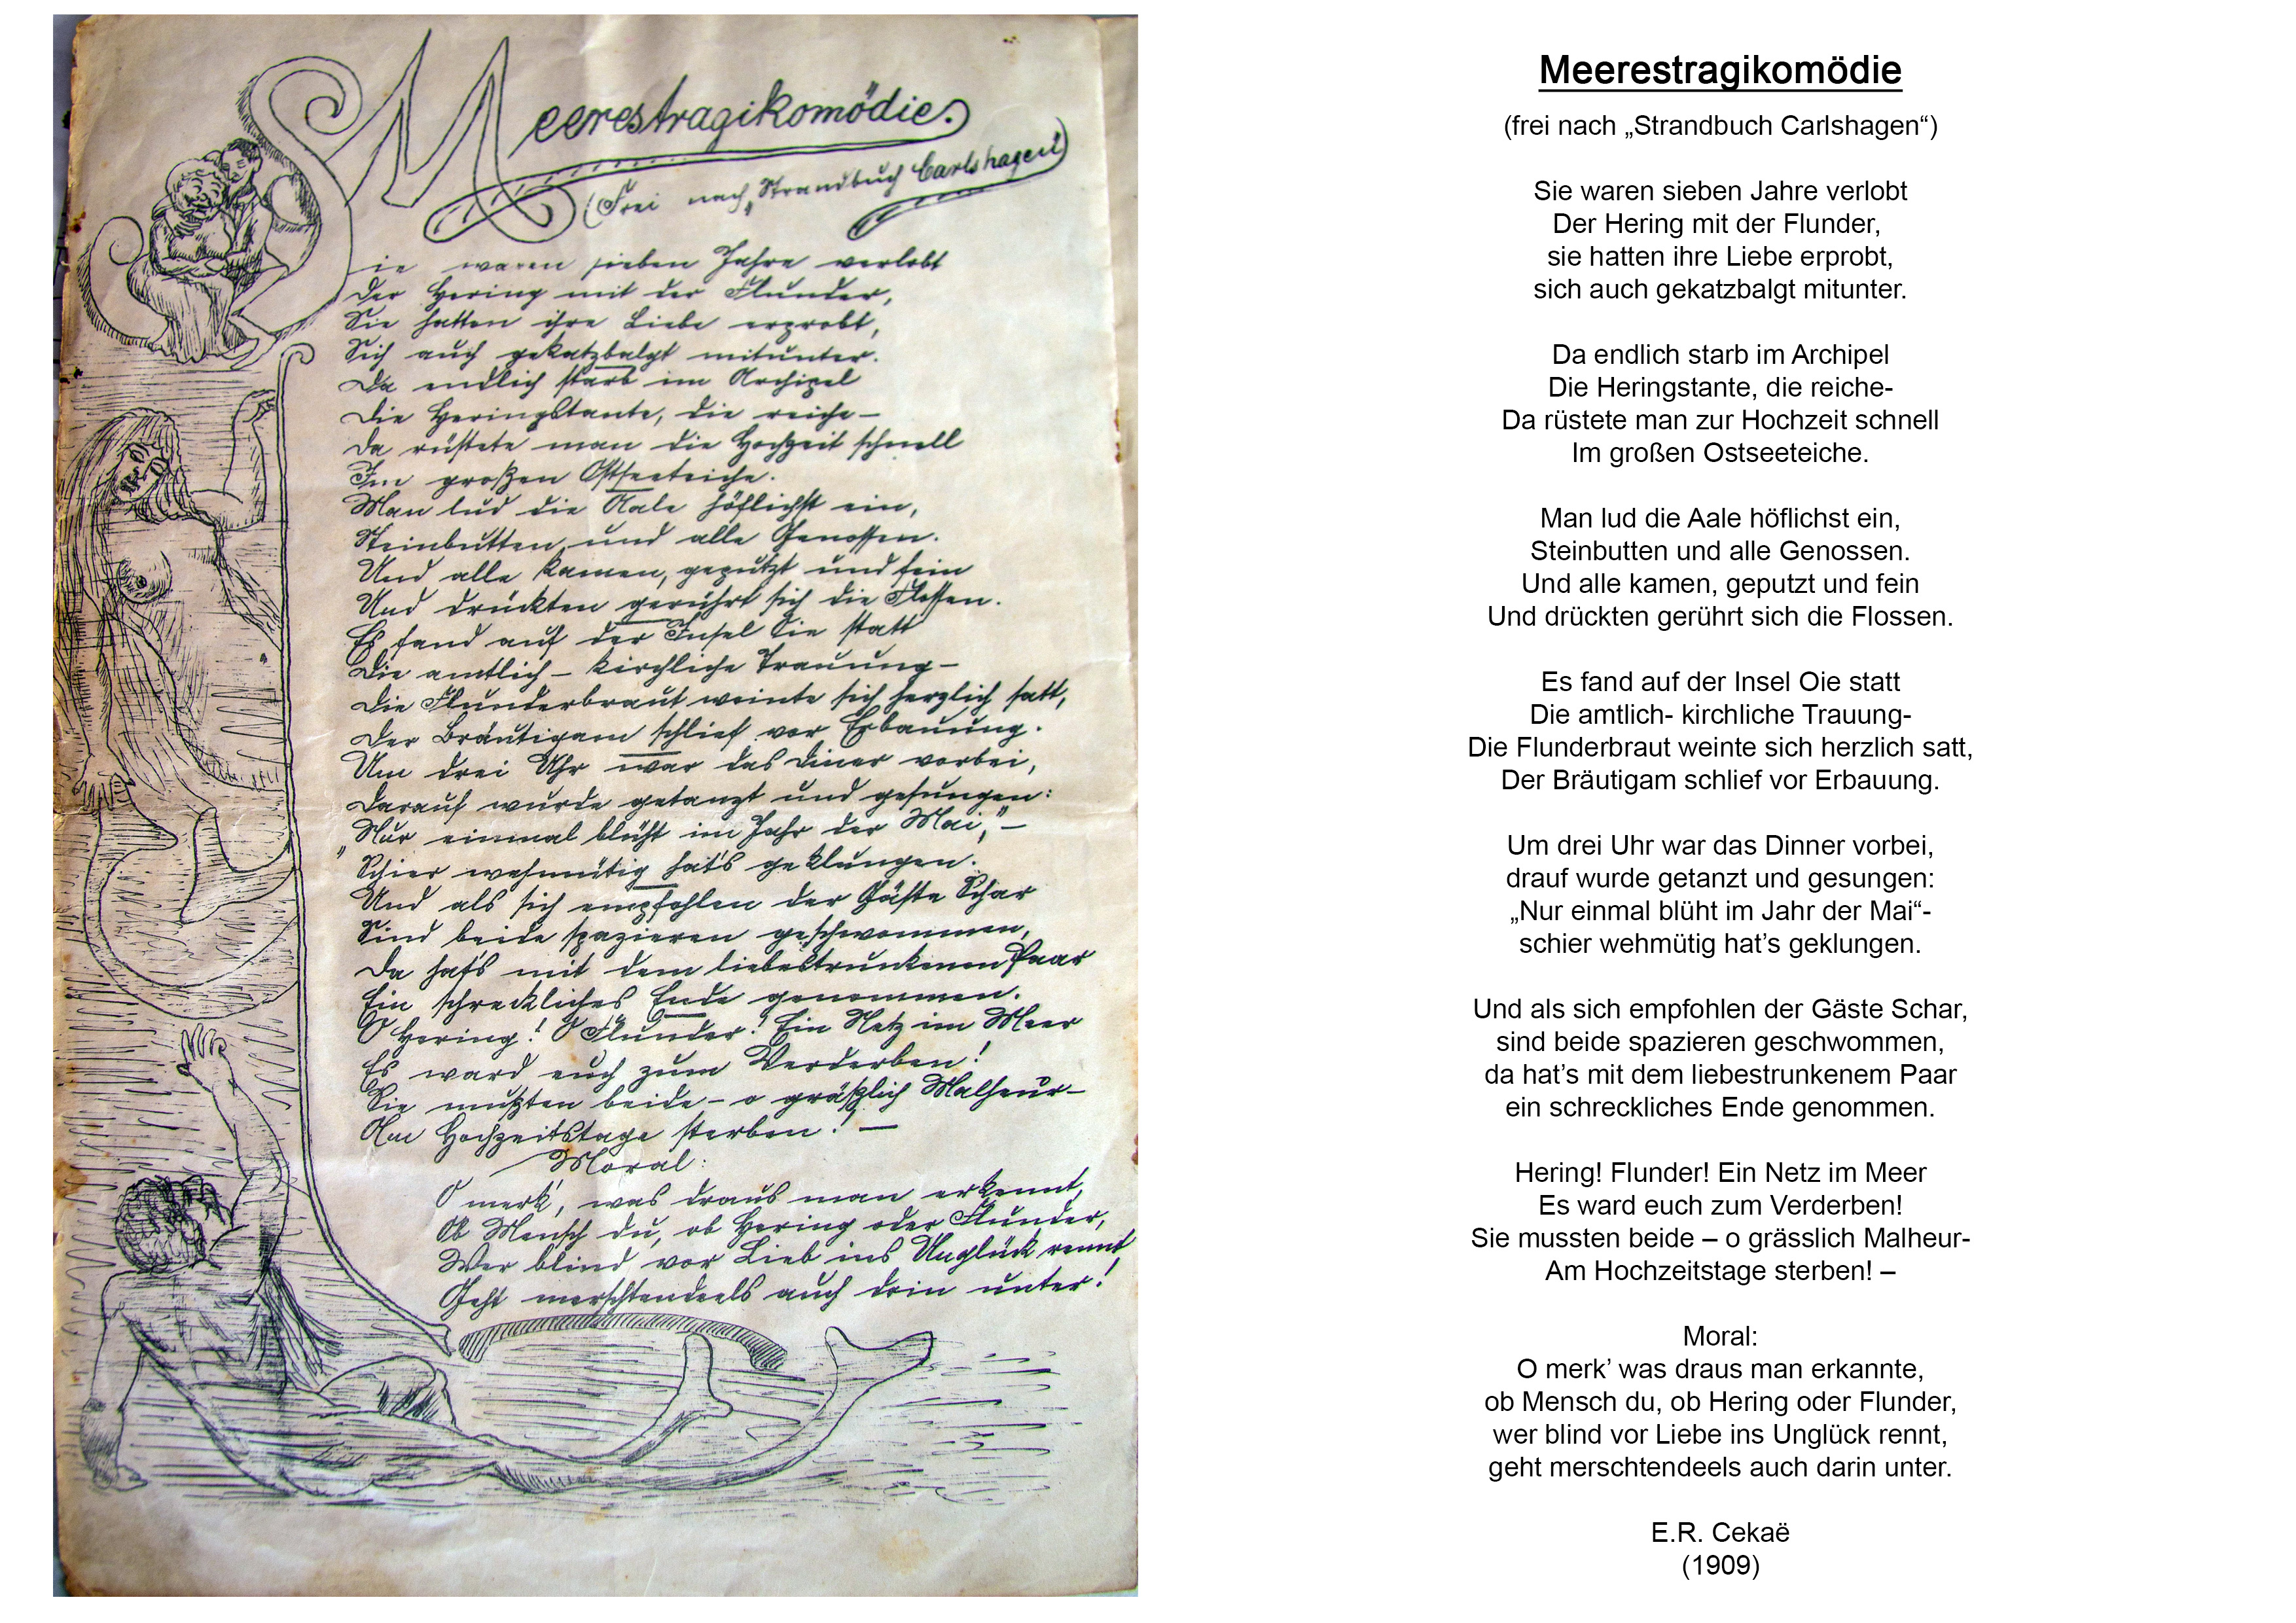 Meerestragikomödie.
(Frei nach „Strandbuch Carlshagen“)
Sie waren sieben Jahre verlobt
Der Hering mit der Flunder,
Sie hatten ihre Liebe erprobt,
Sich auch gekatzbalgt mitunter.
Da endlich starb im Archipel
Die Heringstante, die reiche –
Da rüstete man die Hochzeit schnell
Im großen Ostseeteiche.
Man lud die Aale höflichst ein,
Steinbutten und alle Genossen.
Und alle kamen, geputzt und fein
Und drückten gerührt sich die Flossen.
Es fand auf der Insel Oie statt
Die amtlich – kirchliche Trauung –
Die Flunderbraut weinte sich herzlich satt,
Der Bräutigam schlief vor Erbauung.
Um drei Uhr war das Diner vorbei,
Darauf wurde getanzt und gesungen:
„Nur einmal blüht im Jahr der Mai,“ –
Schier wehmütig hat's geklungen.
Und als sich empfohlen der Gäste Schar
Sind beide spazieren geschwommen,
Da hat's mit dem liebestrunkenen Paar
Ein schreckliches Ende genommen.
O Hering! O Flunder! Ein Netz im Meer
Es ward euch zum Verderben!
Sie mußten beide – o gräßlich Malheur –
Am Hochzeitstage sterben! –
Moral:
O merk', was draus man erkennt,
Ob Mensch du, ob Hering oder Flunder,
Wer blind vor Lieb ins Unglück rennt
Geht merschtendeels auch drin unter!
Meerestragikomödie
(frei nach „Strandbuch Carlshagen“)
Sie waren sieben Jahre verlobt
Der Hering mit der Flunder,
sie hatten ihre Liebe erprobt,
sich auch gekatzbalgt mitunter.
Da endlich starb im Archipel
Die Heringstante, die reiche-
Da rüstete man zur Hochzeit schnell
Im großen Ostseeteiche.
Man lud die Aale höflichst ein,
Steinbutten und alle Genossen.
Und alle kamen, geputzt und fein
Und drückten gerührt sich die Flossen.
Es fand auf der Insel Oie statt
Die amtlich- kirchliche Trauung-
Die Flunderbraut weinte sich herzlich satt,
Der Bräutigam schlief vor Erbauung.
Um drei Uhr war das Dinner vorbei,
drauf wurde getanzt und gesungen:
„Nur einmal blüht im Jahr der Mai“-
schier wehmütig hat’s geklungen.
Und als sich empfohlen der Gäste Schar,
sind beide spazieren geschwommen,
da hat’s mit dem liebestrunkenem Paar
ein schreckliches Ende genommen.
Hering! Flunder! Ein Netz im Meer
Es ward euch zum Verderben!
Sie mussten beide – o grässlich Malheur-
Am Hochzeitstage sterben! –
Moral:
O merk’ was draus man erkannte,
ob Mensch du, ob Hering oder Flunder,
wer blind vor Liebe ins Unglück rennt,
geht merschtendeels auch darin unter.
E.R. Cekaë
(1909)